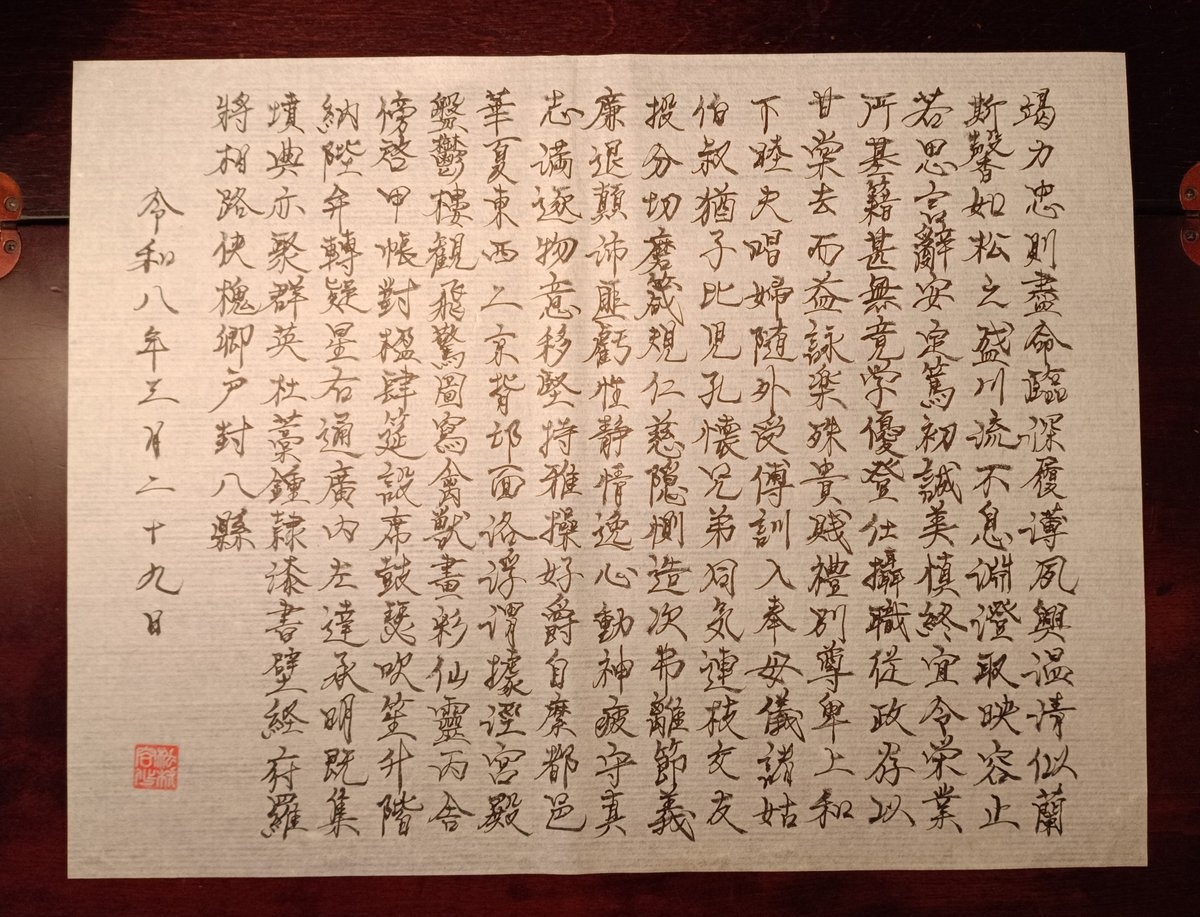 竭力忠則盡命臨深履薄夙興温凊似蘭
斯馨如松之盛川流不息淵澄取映容止
若思言辭安定篤初誠美慎終宜令栄業
所基籍甚無竟学優登仕攝職従政存以
甘棠去而益詠楽殊貴賤禮別尊卑上和
下睦夫唱婦随外受傅訓入奉母儀諸姑
伯叔猶子比児孔懐兄弟同気連枝交友
投分切磨箴規仁慈隠惻造次弗離節義
廉退顛沛匪虧性静情逸心動神疲守真
志満逐物意移堅持雅操好爵自縻都邑
華夏東西二京背邙面洛浮渭據涇宮殿
盤鬱樓観飛驚圖寫禽獣畫彩仙靈丙舎
傍啓甲帳對楹肆筵設席鼓瑟吹笙升階
納陛弁轉疑星右通廣内左達承明既集
墳典亦聚群英杜藁鍾隷漆書壁経府羅
將相路侠槐卿戸封八縣
令和八年三月二十九日